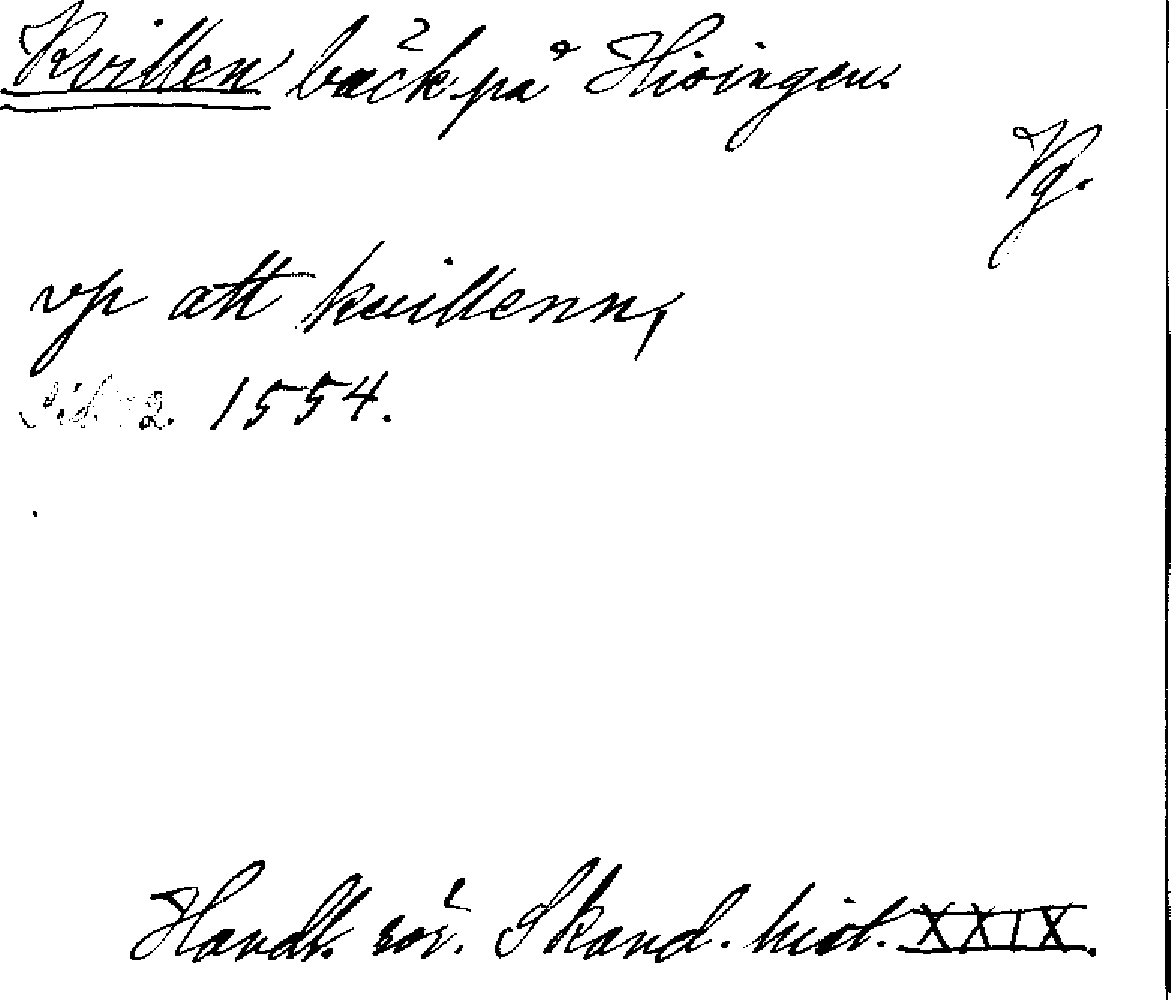 Kvillen bäck på Hisingen.
Vg.
vp att kuillenn,
Sid. 72. 1554.
Handl. rör. Skand. hist. XXIX.